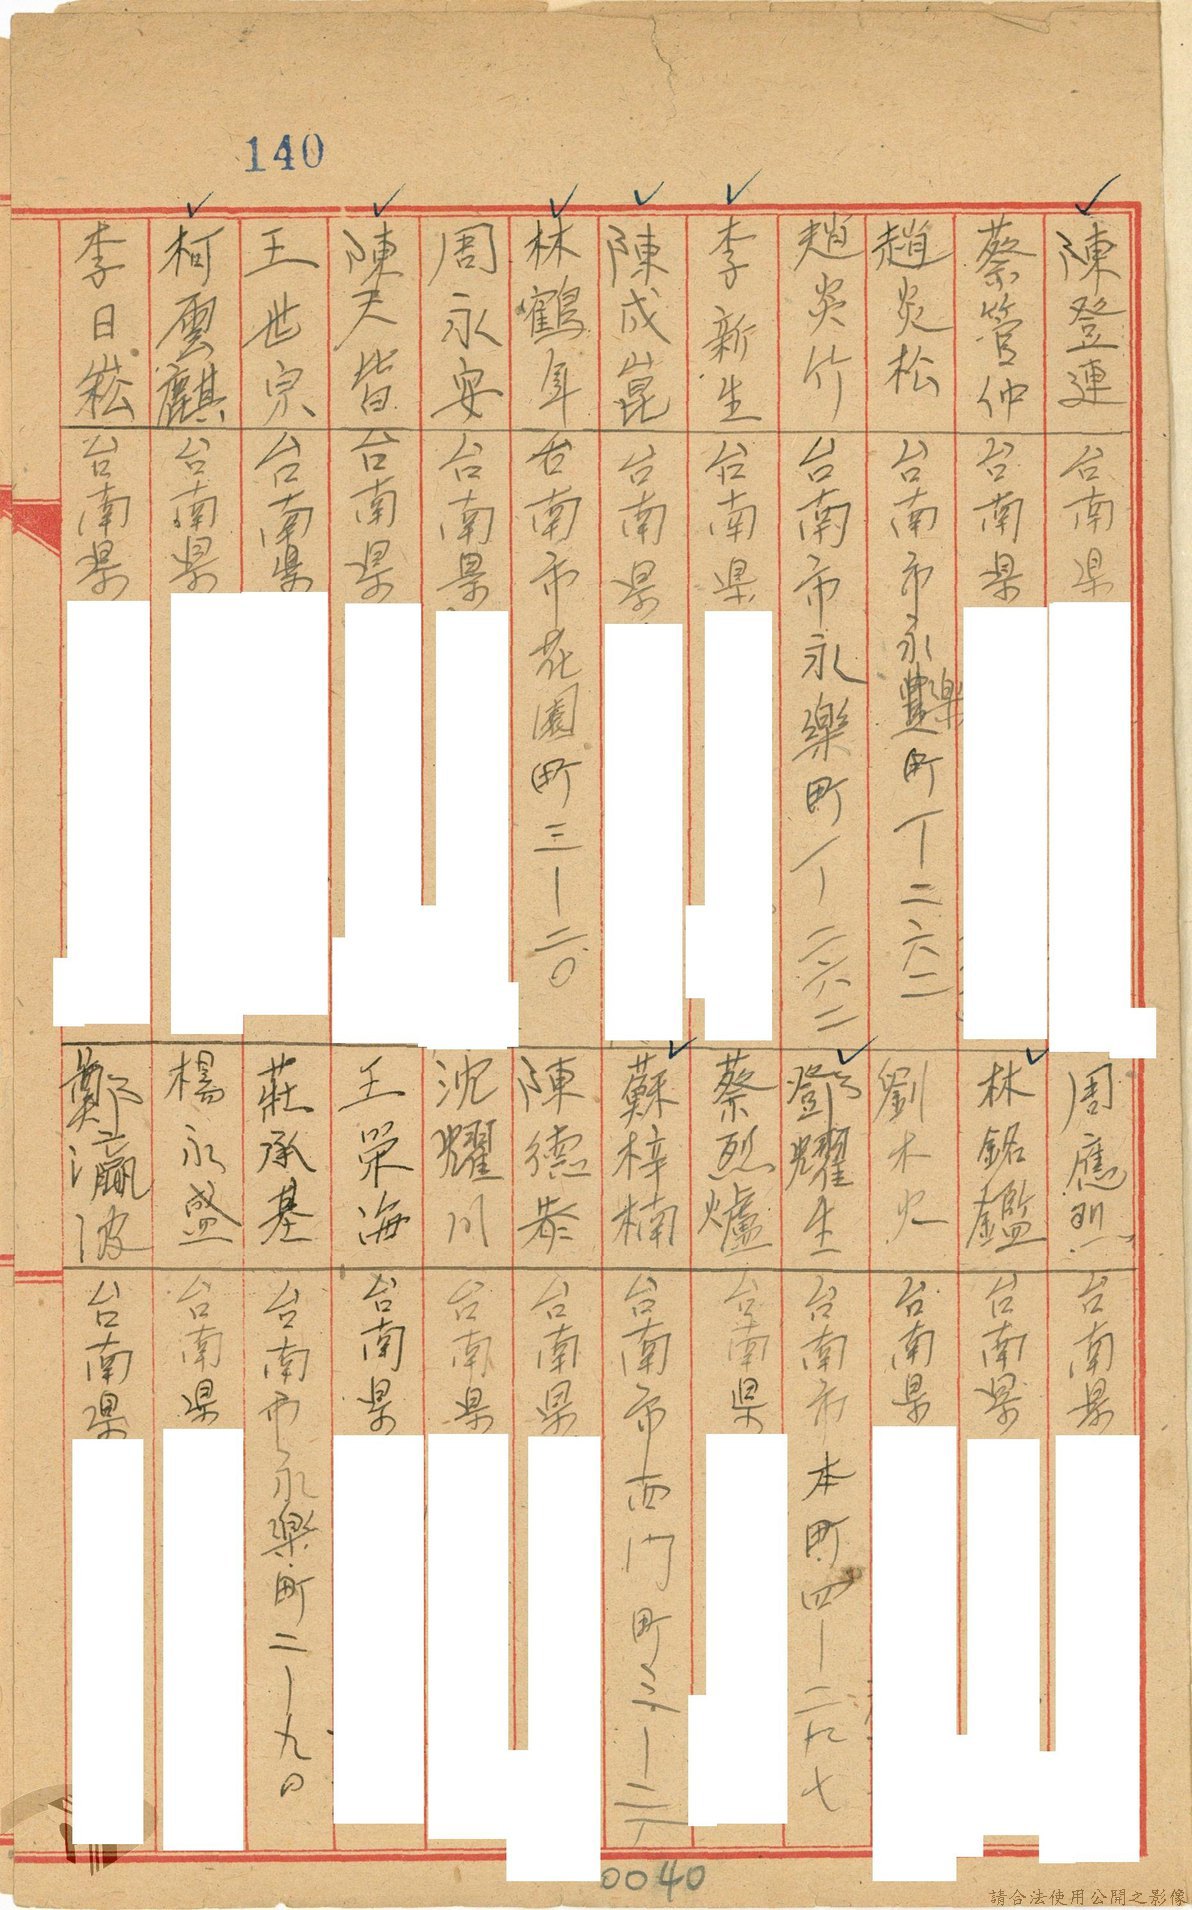 140
陳登連 台南県
蔡管仲 台南県
趙炎松 台南市永樂町一丨二六二
趙炎竹 台南市永樂町一丨二六二
李新生 台南県
陳成崑 台南県
林鶴年 台南市花園町三丨二〇
周永安 台南県
陳天皆 台南県
王世宗 台南県
柯雲麒 台南県
李日崧 台南県
周應烈 台南県
林銘鑑 台南県
劉木火 台南県
鄧耀生 台南市本町四丨二九七
蔡烈爐 台南県
蘇梓楠 台南市西門町
陳德恭 台南県
沈耀川 台南県
王榮海 台南県
莊承基 台南市永樂町二丨九〇
楊永盛 台南県
鄭瀛波 台南県
0040
請合法使用公開之影像